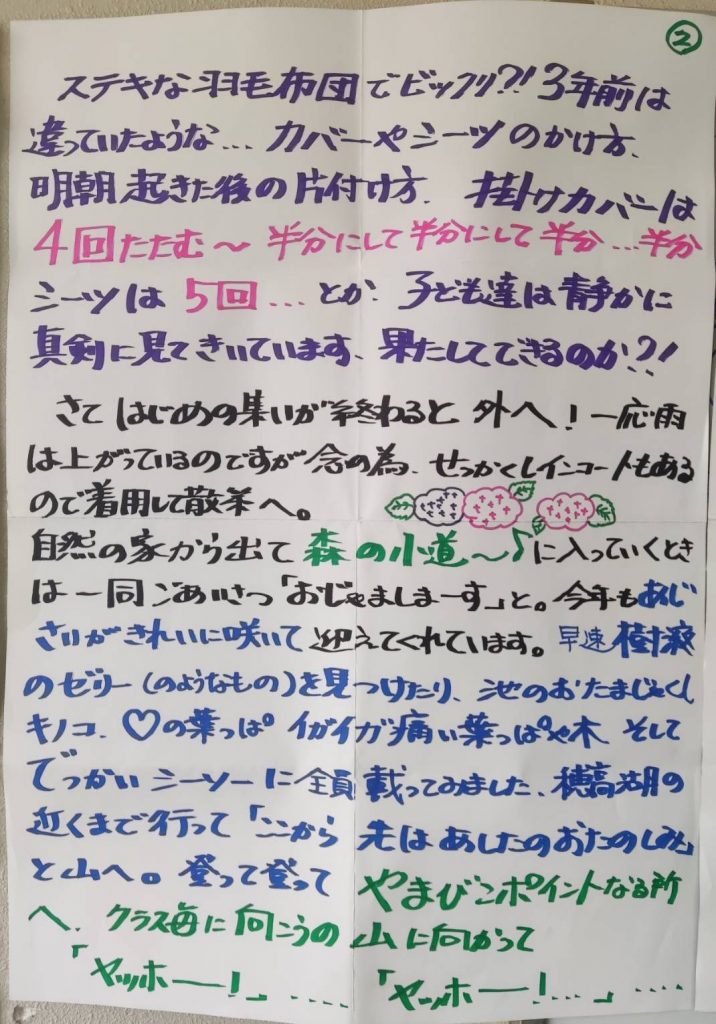 ②
ステキな羽毛布団でビックリ?! 3年前は
違っていたような… カバーやシーツのかけ方、
明朝起きた後の片付け方、掛けカバーは
4回たたむ〜 半分にして半分にして半分…半分
シーツは5回…とか、子ども達は静かに
真剣に見てきいています、果たしてできるのか?!
さてはじめの集いが終わると外へ!一応雨
は上がっているのですが念の為、せっかくレインコートもある
ので着用して散策へ。
自然の家から出て森の小道〜♪に入っていくとき
は一同ごあいさつ「おじゃましまーす」と。今年もあじ
さいがきれいに咲いて迎えてくれています。早速樹液
のゼリー(のようなもの)を見つけたり、池のおたまじゃくし
キノコ、♡の葉っぱ イガイガ痛い葉っぱや木 そして
でっかいシーソーに全員載ってみました、穂高湖の
近くまで行って「ここから先はあしたのおたのしみ」
と山へ。登って登って やまびこポイントなる所
へ、クラス毎に向こうの山に向かって
「ヤッホー!」…… 「ヤッホー!…」……